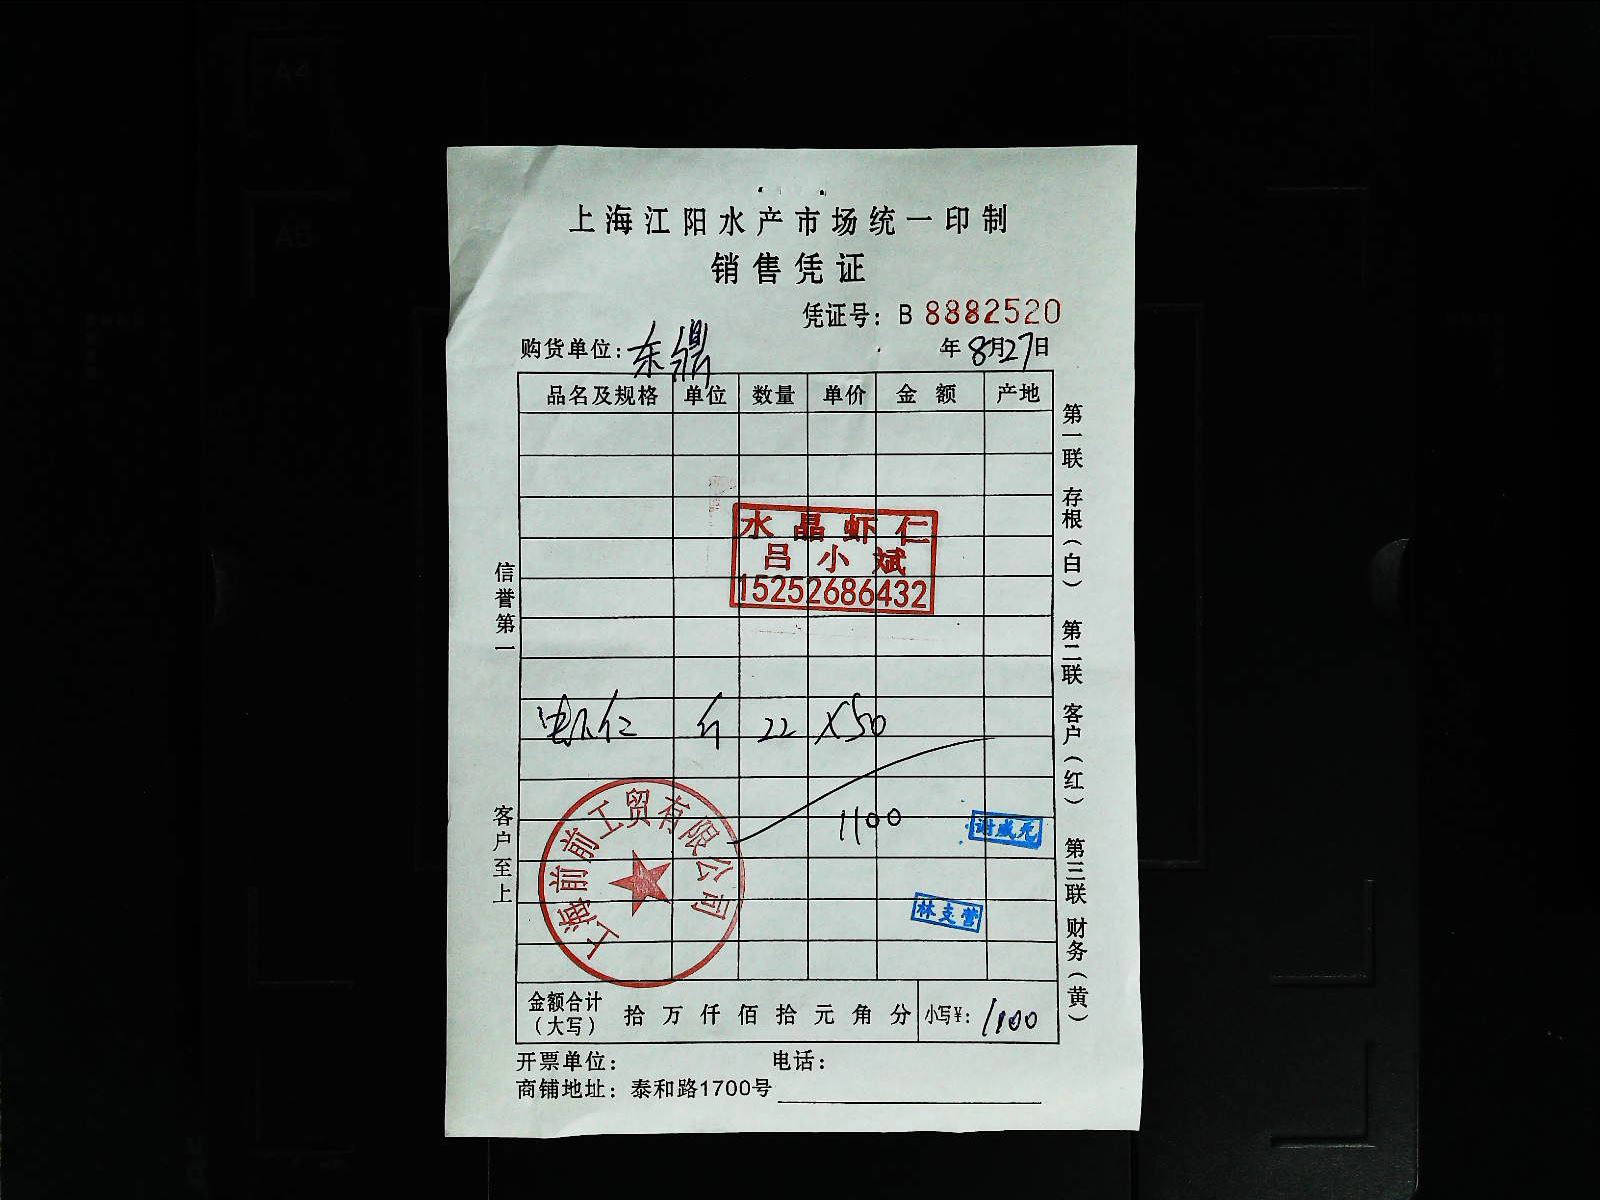 上海江阳水产市场统一印制
销售凭证
凭证号：B 8882520
购货单位：东鼎 年8月27日
品名及规格 单位 数量 单价 金额 产地
水晶虾仁
吕小斌
15252686432
虾仁 斤 22 X50
1100
谢成元
林支营
上海前前工贸有限公司
金额合计（大写） 拾 万 仟 佰 拾 元 角 分 小写¥：1100
开票单位： 电话：
商铺地址：泰和路1700号
信誉第一
客户至上
第一联 存根（白） 第二联 客户（红） 第三联 财务（黄）